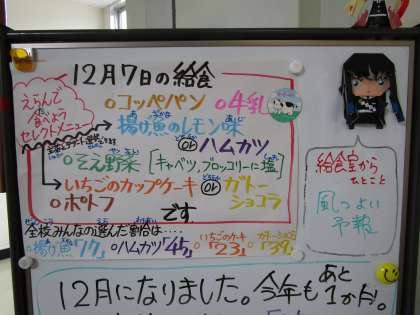 12月7日の給食
えらんで
食べよう
セレクトメニュー
○コッペパン ○牛乳
揚げ魚のレモン味
or ハムカツ
○そえ野菜 [キャベツ、ブロッコリーに塩]
いちごのカップケーキ or ガトーショコラ
○ポトフ
です
全校みんなの選んだ割合は・・・・
○揚げ魚「77」 ○ハムカツ「45」 ○いちごのケーキ「23」 ○ガトーショコラ「39」
給食室から
ひとこと
風つよい
予報
12月になりました。今年もあと1か月。